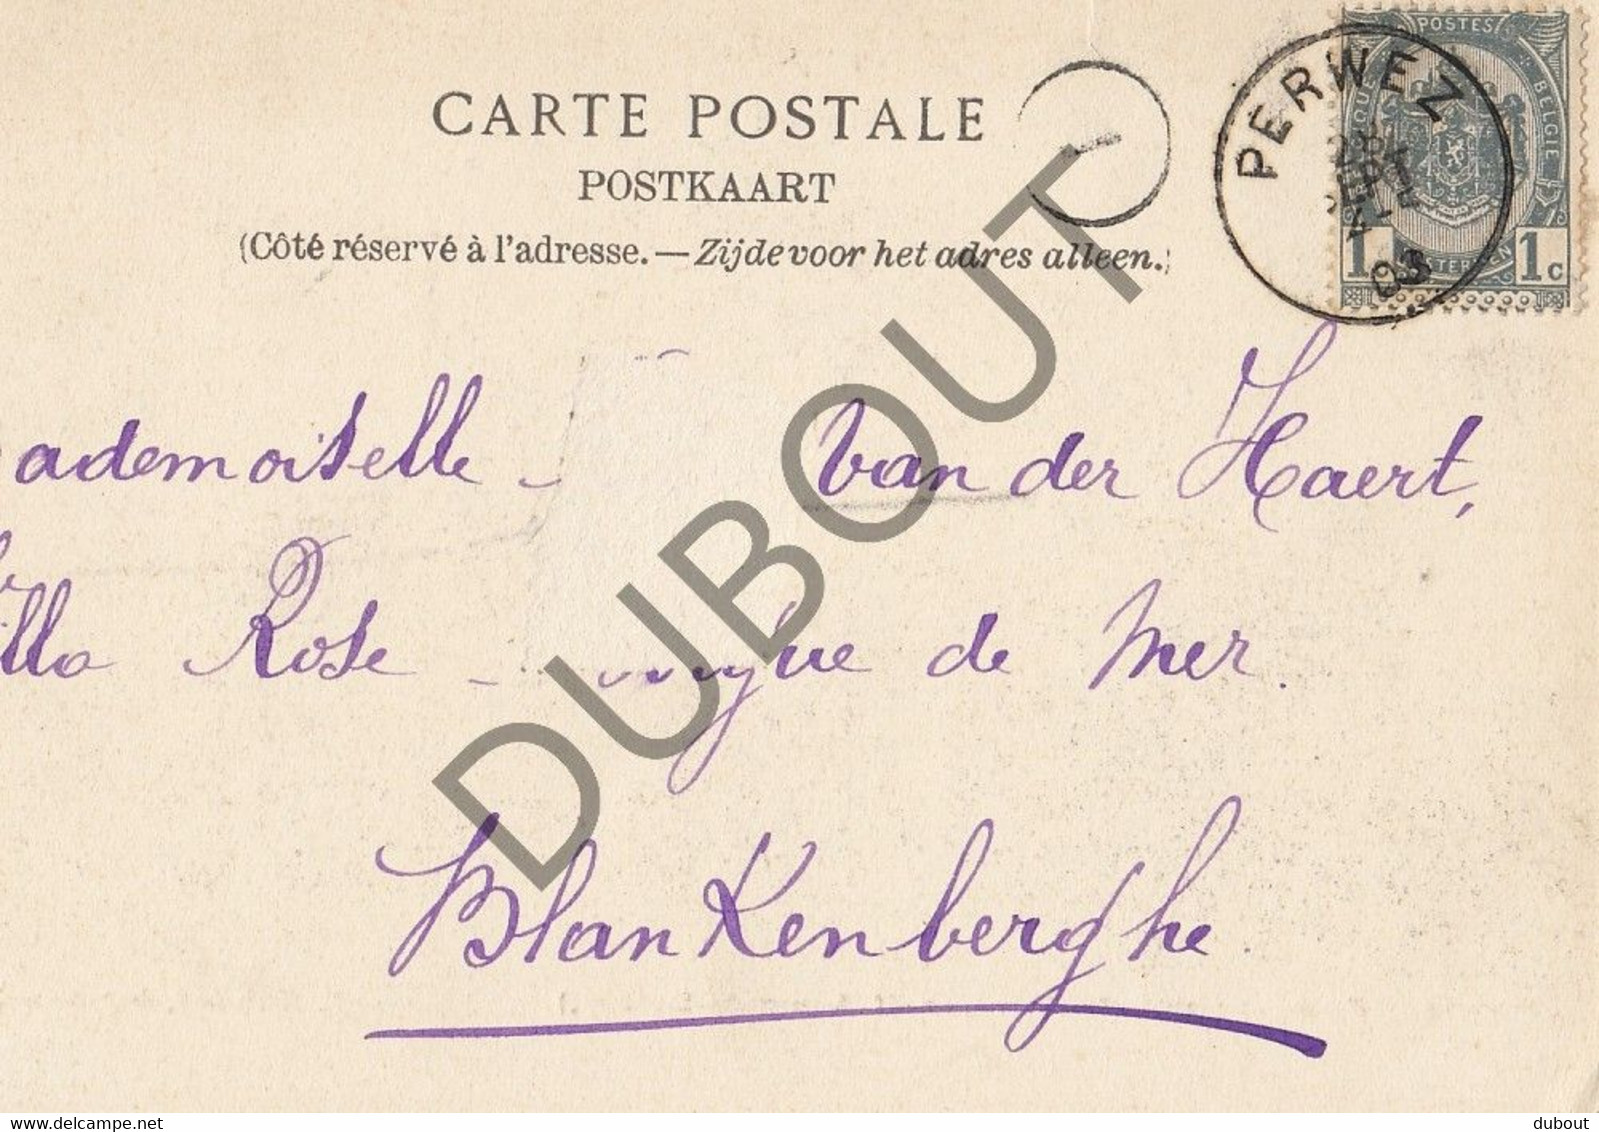 CARTE POSTALE
POSTKAART
(Côté réservé à l'adresse. — Zijde voor het adres alleen.)
PERWEZ
SEPT
03
POSTES
BELGIE
1 1c
ademoiselle - Van der Haert,
illa Rose - de Mer.
BlanKenberghe
DUBOUT
delcampe.net
dubout